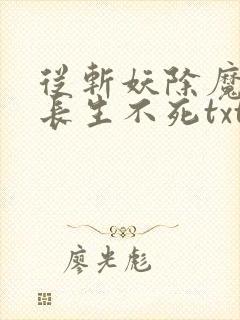 從斬妖除魔
長生不死txt
廖光彪